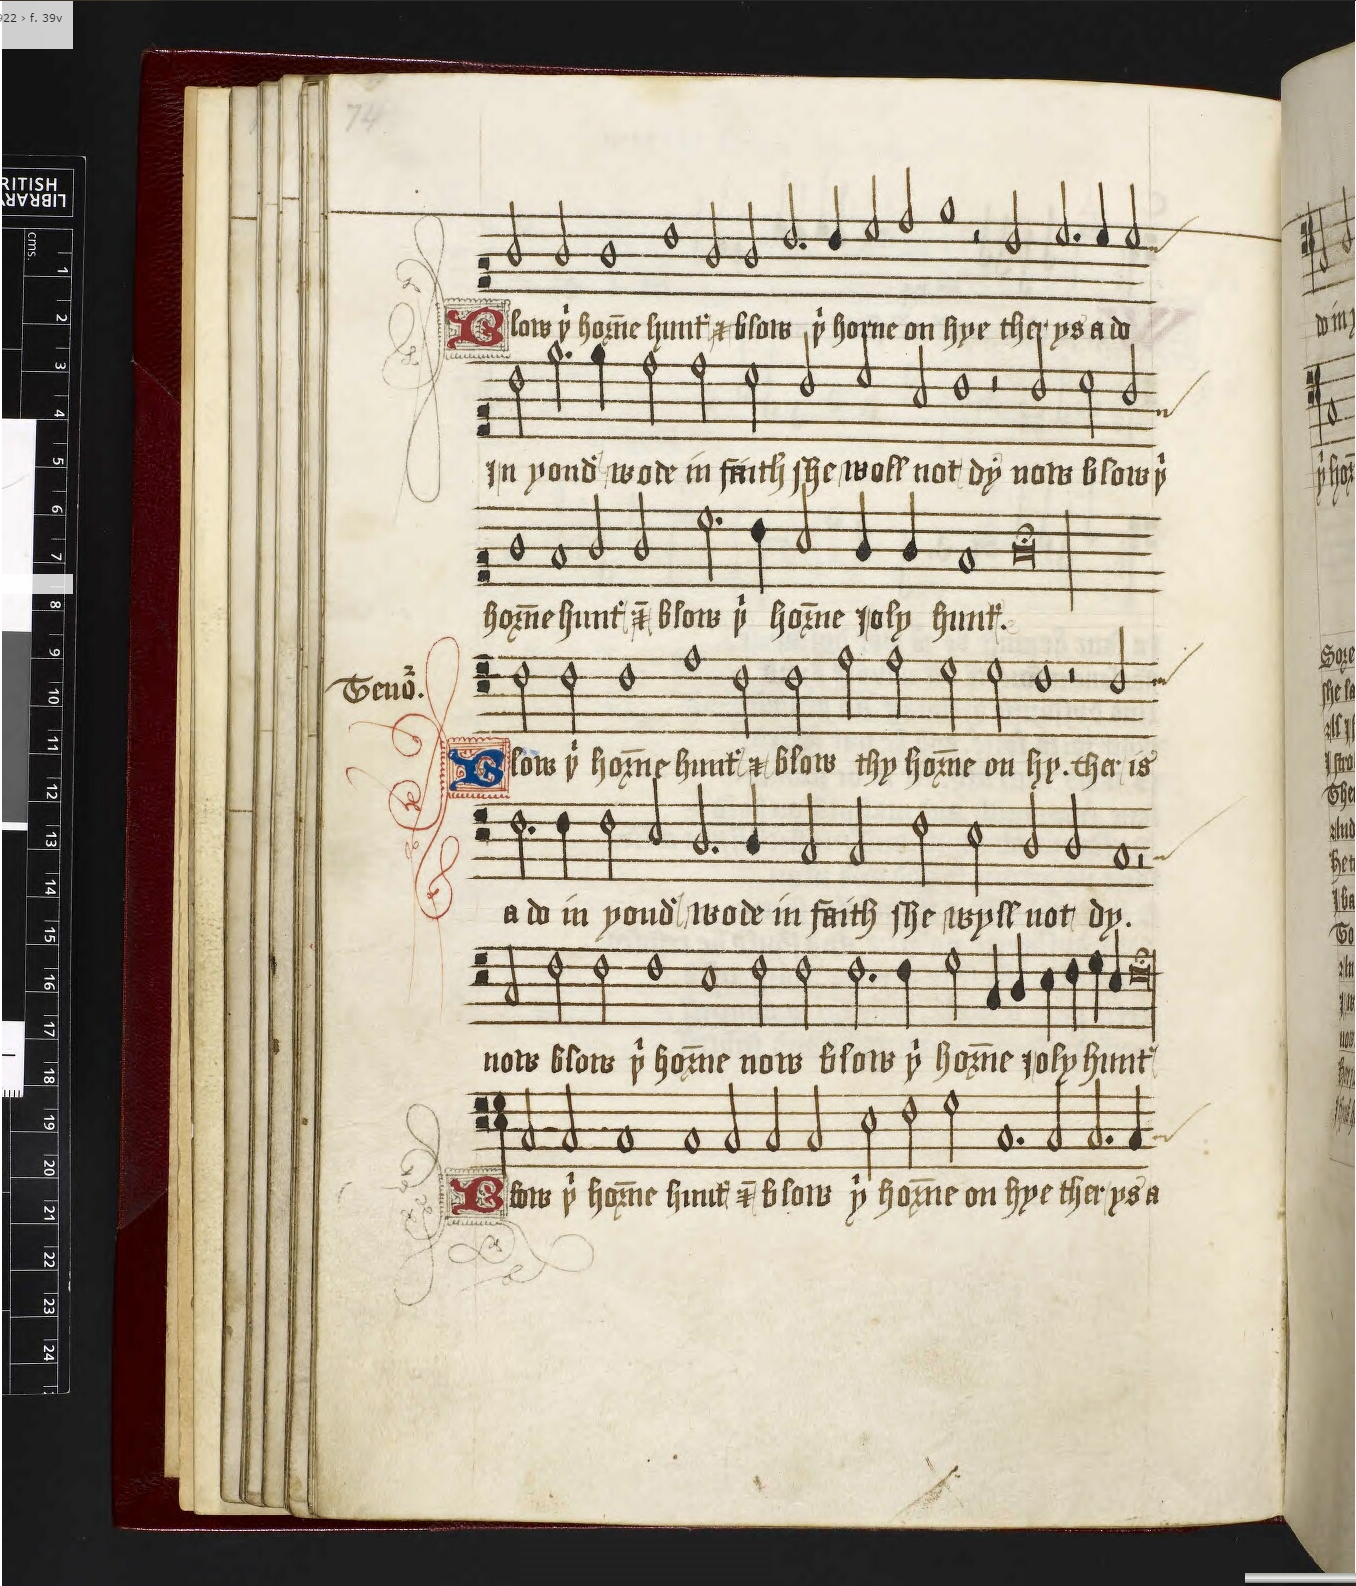 922 › f. 39v
74
BRITISH
LIBRARY
cms.
1
2
3
4
5
6
7
8
9
10
11
12
13
14
15
16
17
18
19
20
21
22
23
24
Blow þͥ horn̄e hunt' & blow þͥ horne on hye ther ys a do
In yond' wode in faith she woll not dy now blow þͥ
horn̄e hunt' & blow þͥ horn̄e Joly hunt'.
Tenor̄.
Blow þͥ horn̄e hunt' & blow thy horn̄e on hy. ther is
a do in yond' wode in faith she wyll not dy.
now blow þͥ horn̄e now blow þͥ horn̄e Joly hunt'
Blow þͥ horn̄e hunt' & blow þͥ horn̄e on hye ther ys a